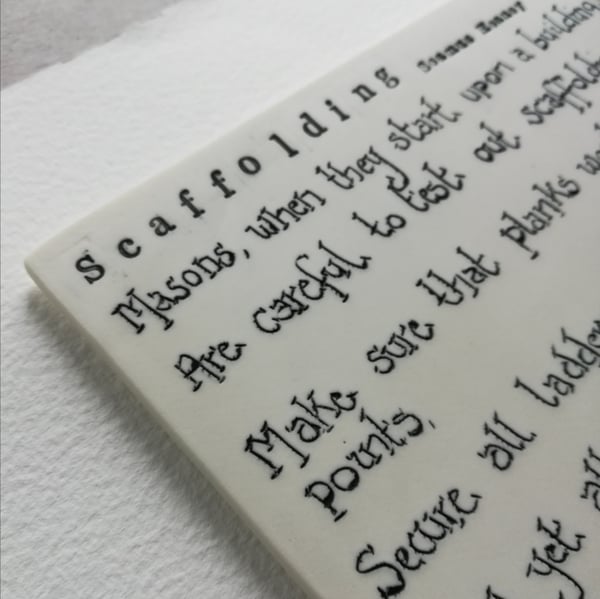 Scaffolding Seamus Heaney
Masons, when they start upon a building,
Are careful to test out scaffolding
Make sure that planks
points,
Secure all ladder
yet all